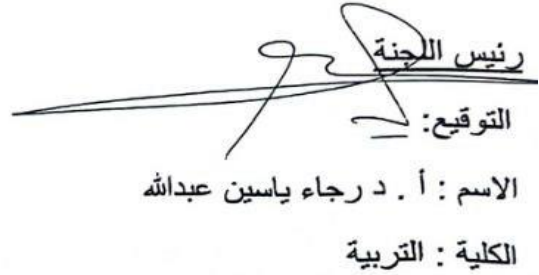 رئيس اللجنة
التوقيع:
الاسم : أ . د رجاء ياسين عبدالله
الكلية : التربية